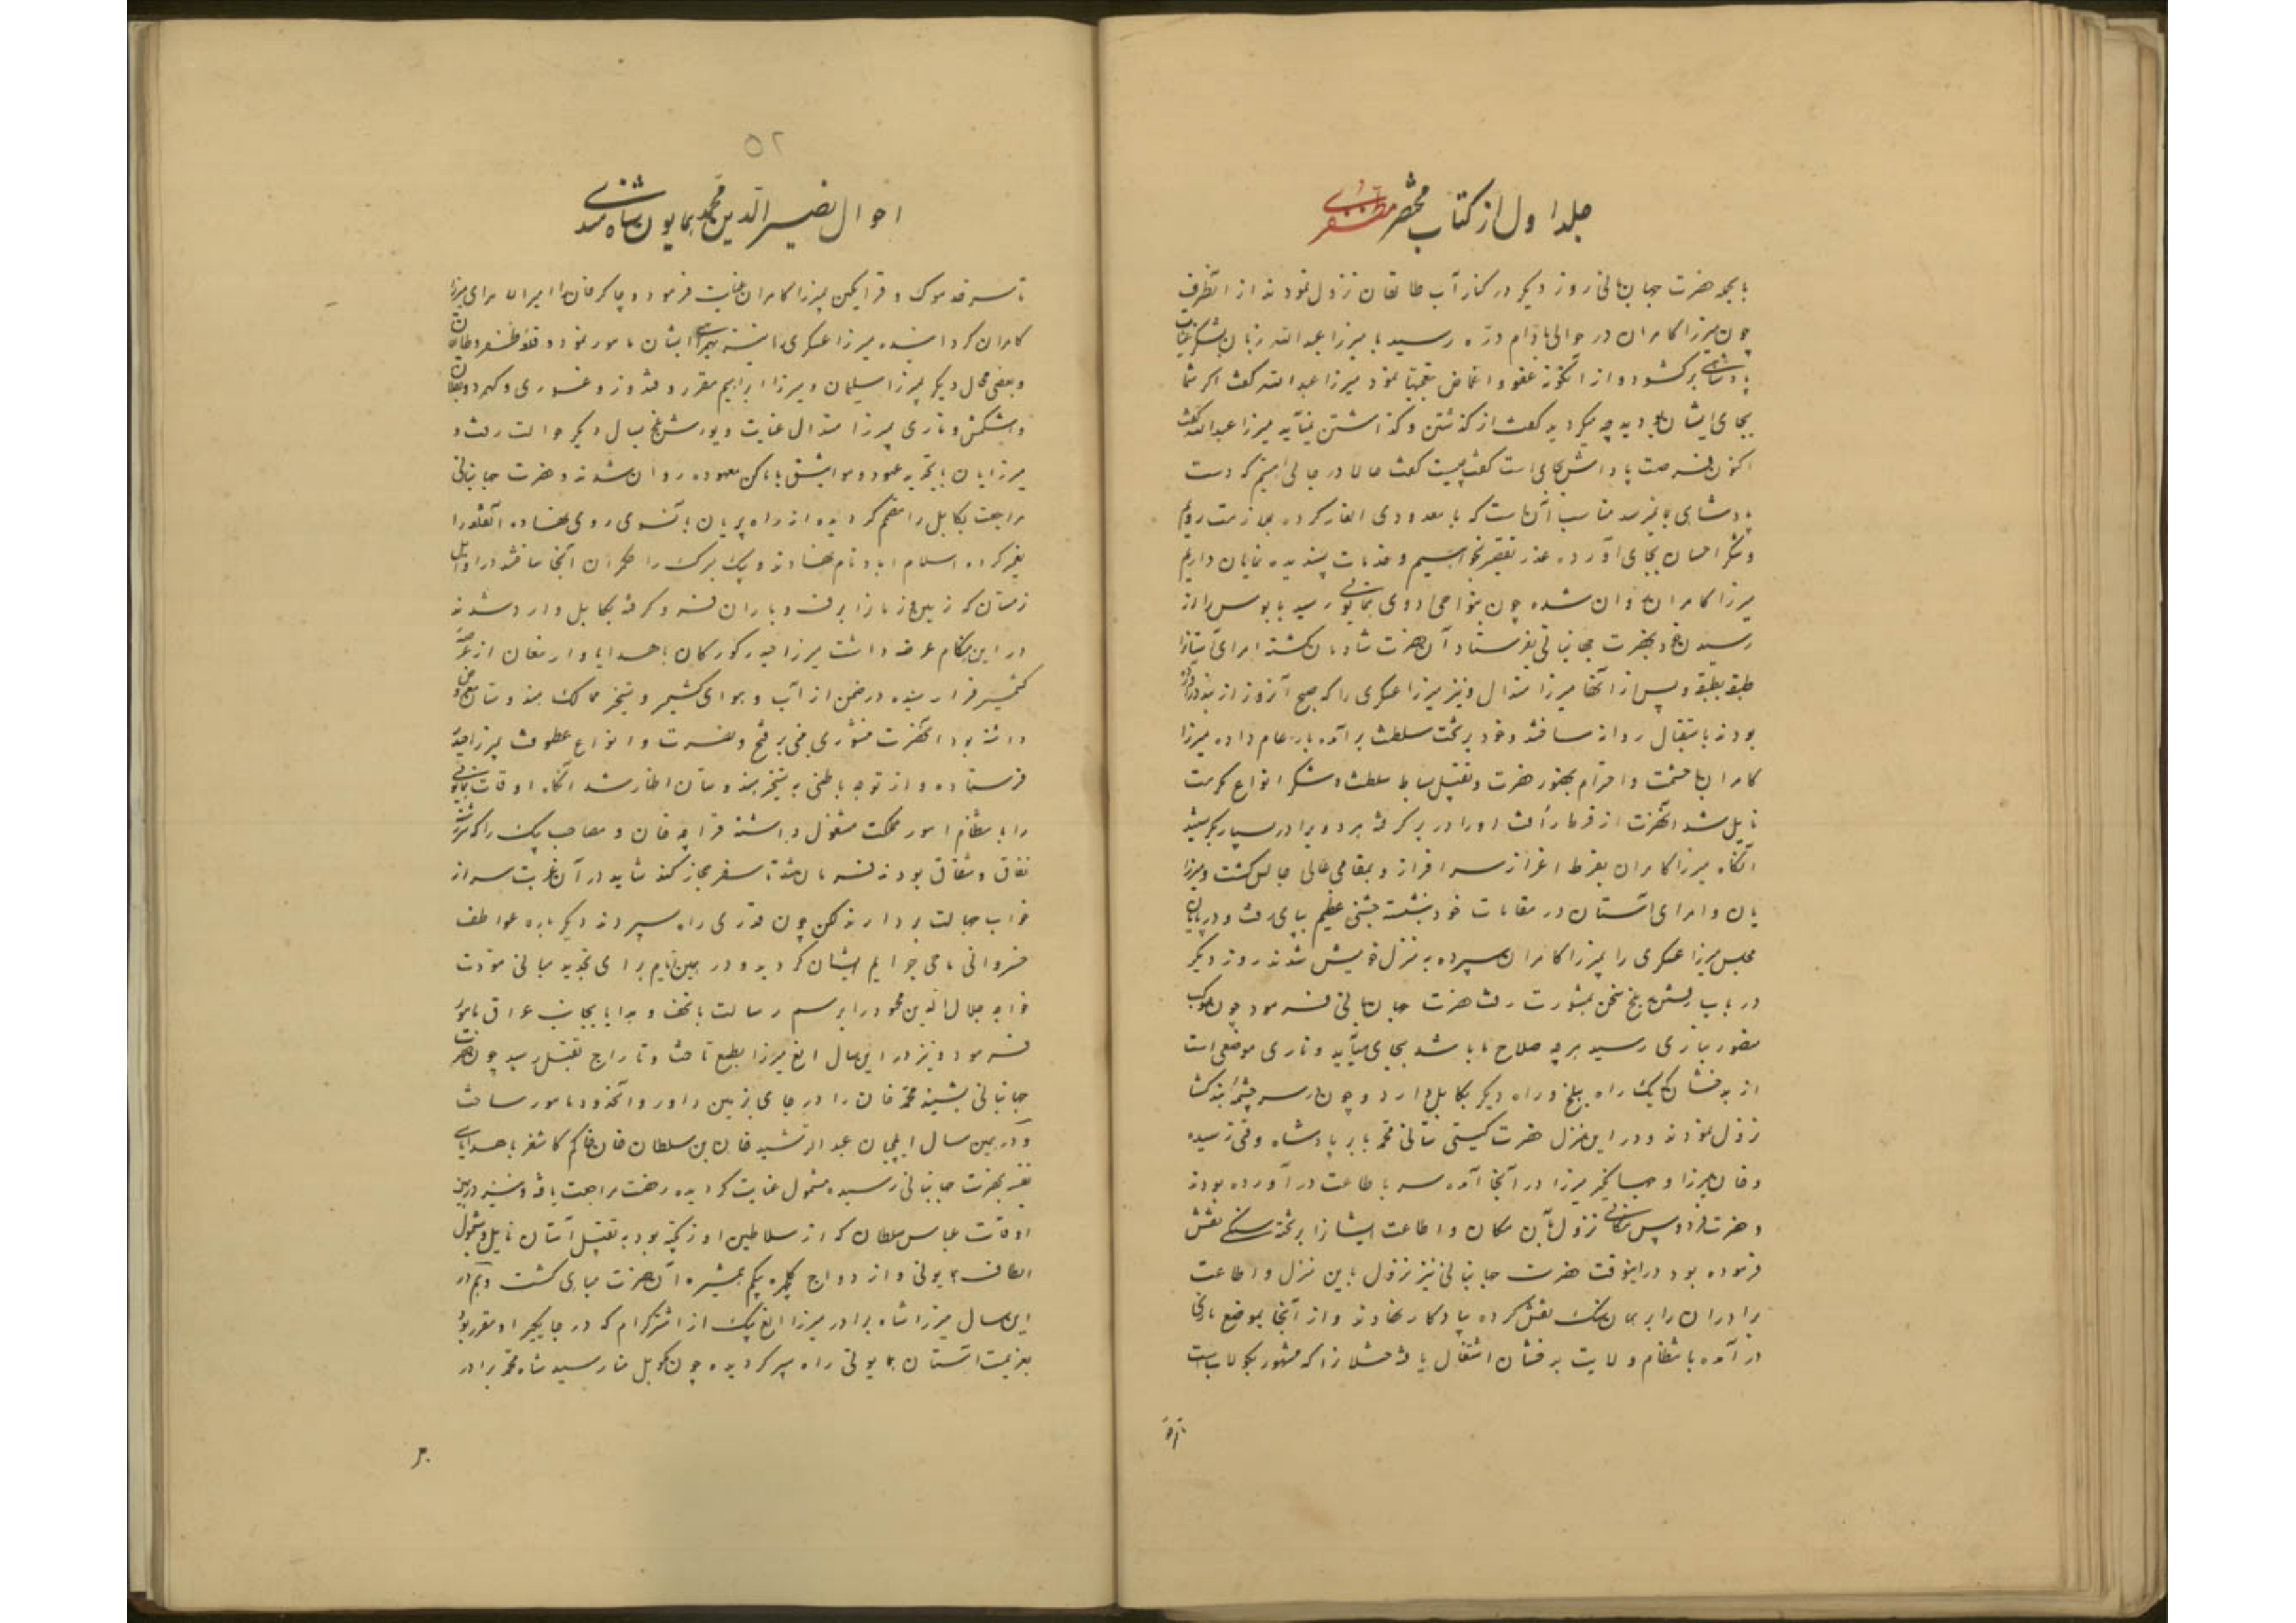 جلد اول از کتاب مختصر مظفری
بالجمله حضرت جهانبانی روز دیگر در کنار آب طالقان نزول نمودند از آنطرف
چون میرزا کامران در حوالی بادام دره رسید با میرزا عبدالله زبان بشکر عنایت
پادشاهی برگشود و از اینگونه عفو و اغماض تعجبها نمود میرزا عبدالله گفت اگر شما
بجای ایشان بودید چه میکردید گفت از گذشتن و گذاشتن نمیآید میرزا عبدالله گفت
اکنون فرصت پاداش بجای است گفت چیست گفت حالا در جائی هستیم که دست
پادشاهی بما نمیرسد مناسب آنست که با معدودی ایلغار کرده بملازمت رویم
و شکر احسان بجای آورده عذر تقصیر بخواهیم و خدمات پسندیده نمایان داریم
میرزا کامران روان شده چون بنواحی اردوی همایونی رسید بابوس را از
رسیدن خود بحضرت جهانبانی بفرستاد آن حضرت شادمان گشته امرای آستانرا
طبقه بطبقه و پس از آنها میرزا هندال و نیز میرزا عسکری را که صبح آنروز از بند
بودند باستقبال روانه ساختند و خود بر تخت سلطنت برآمده بار عام داده میرزا
کامران با حشمت و احترام بحضور حضرت و تقبیل بساط سلطنت و شکر انواع مکرمت
نایل شد آنحضرت از فرط رأفت او را در بر گرفته هر دو برادر بسیار بگریستند
آنگاه میرزا کامران بفرط اعزاز سرافراز و بمقامی عالی جالس گشت و میرزا
یان و امرای آستان در مقامات خود نشسته جشنی عظیم بپای رفت و در پایان
مجلس میرزا عسکری را بمیرزا کامران سپرده به منزل خویش شدند روز دیگر
در باب رفتن بلخ سخن بمشورت رفت حضرت جهانبانی فرمود چون موکب
منصور بناری رسید هر چه صلاح باشد بجای میآید و ناری موضعی است
از بدخشان که یک راه ببلخ و راه دیگر بکابل دارد و چون بر سر چشمه بندکشا
نزول نمودند و در این منزل حضرت گیتی ستانی محمد بابر پادشاه وقتی رسیده
و خان میرزا و جهانگیر میرزا در آنجا آمده سر باطاعت در آورده بودند
و حضرت فردوس مکانی نزول بآن مکان و اطاعت ایشانرا بر تخته سنگی نقش
فرموده بود در اینوقت حضرت جهانبانی نیز نزول باین منزل و اطاعت
برادران را بر همان سنگ نقش کرده یادگار نهادند و از آنجا بموضع نارنجی
در آمده بانتظام ولایت بدخشان اشتغال یافت ختلانرا که مشهور بکولاب است
۵۲
احوال نصیر الدین محمد همایون شاه هندی
تا سرحد موک و قراتکین بمیرزا کامران عنایت فرمود و چاکر خانرا امیرالامرای میرزا
کامران گردانیده میرزا عسکری را نیز بهمراهی ایشان مامور نمود و قلعه ظفر و طالقان
و بعضی محال دیگر بمیرزا سلیمان و میرزا ابراهیم مقرر و قندوز و غوری و کهمرد و بقلان
و اشکمش و ناری بمیرزا هندال عنایت و یورش بلخ بسال دیگر حوالت رفت و
میرزایان بتجدید عهود و مواثیق باماکن معهوده روان شدند و حضرت جهانبانی
مراجعت بکابل را مصمم گردیده از راه پریان بآنسوی روی نهاده آنقلعه را
تعمیر کرده اسلام اباد نام نهادند و بیک میرک را حکمران آنجا ساختند در اوایل
زمستان که زمین و زمانرا برف و باران فرو گرفته بکابل وارد شدند
در این هنگام عرضه داشت میرزا حیدر گورکان با هدایا و ارمغان از عرصه
کشمیر فرا رسیده در ضمن از آب و هوای کشمیر و تسخیر ممالک هندوستان معروض
داشته بود آنحضرت منشوری مبنی بر فتح و نصرت و انواع عطوفت بمیرزا حیدر
فرستاده و از توجه باطنی به تسخیر هندوستان اظهار شد آنگاه اوقات همایونی
را بانتظام امور مملکت مشغول داشته قراچه خان و مصاحب بیک را که سررشته
نفاق و شقاق بودند فرمان شد تا سفر حجاز کنند شاید در آن غربت سر از
خواب جهالت بردارند لکن چون قدری راه سپردند دیگر باره عواطف
خسروانی ماحی جرایم ایشان گردید و در همین ایام برای تجدید مبانی مودت
خواجه جلال الدین محمود را برسم رسالت با تحف و هدایا بجانب عراق مامور
فرمود و نیز در این سال الغ میرزا بطمع تاخت و تاراج بقتل رسید چون حضرت
جهانبانی بشنید محمد خان را در جای زمین داور و آنحدود مامور ساخت
و در همین سال ایلچیان عبد الرشید خان بن سلطان خان حاکم کاشغر با هدایای
نفیسه بحضرت جهانبانی رسیده مشمول عنایت گردیده رخصت مراجعت یافت و نیز در همین
اوقات عباس سلطان که از سلاطین اوزبکیه بود به تقبیل آستان نایل و مشمول
الطاف همایونی و از دواج گلچهره بیگم همشیره آن حضرت مباهی گشت و هم در
این سال میرزا شاه برادر میرزا الغ بیک از اشترکرام که در جایگیر او مقرر بود
بعزیمت آستان همایونی راه سپر گردیده چون بکوتل منار رسید شاه محمد برادر